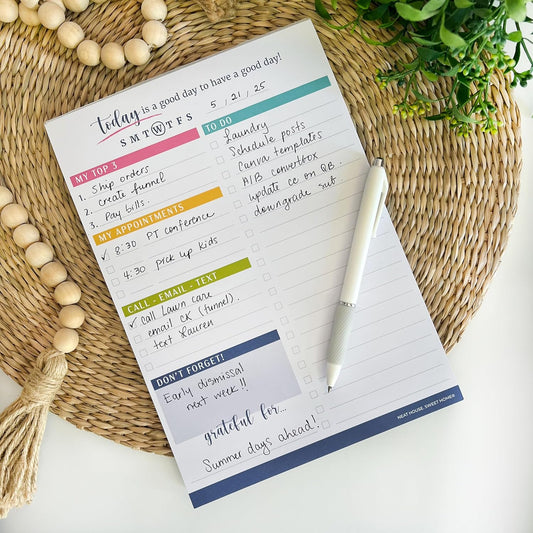 today is a good day to have a good day!
S M T W T F S
5 / 21 / 25
MY TOP 3
1. Ship orders
2. create funnel
3. Pay bills.
MY APPOINTMENTS
✓ 8:30 PT conference
4:30 pick up kids
CALL - EMAIL - TEXT
✓ call Lawn care
email CK (funnel).
text Lauren
DON'T FORGET!
Early dismissal
next week!!
grateful for...
Summer days ahead!
TO DO
Laundry
Schedule posts
Canva templates
A/B convertbox
update cc on QB.
downgrade sub
NEAT HOUSE. SWEET HOME®